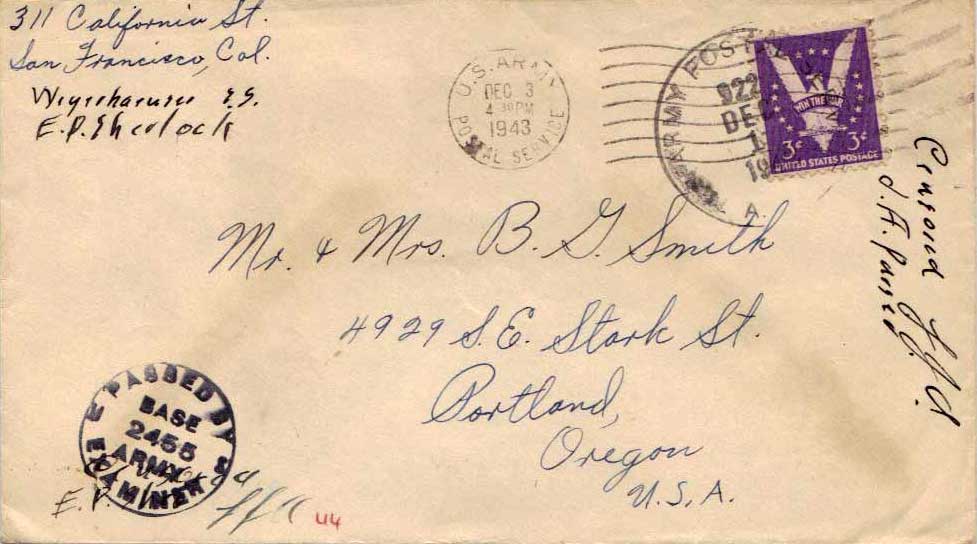 311 California St.
San Francisco, Cal.
U.S. ARMY
DEC 3
4-30PM
1943
POSTAL SERVICE
ARMY POSTAL
922
DE
1
19
A.
WIN THE WAR
3¢ 3¢
UNITED STATES POSTAGE
Censored
Mr. & Mrs. B. G. Smith
4929 S.E. Stark St.
Portland,
Oregon
U.S.A.
PASSED BY
BASE
2455
ARMY
EXAMINER
E.P.
44